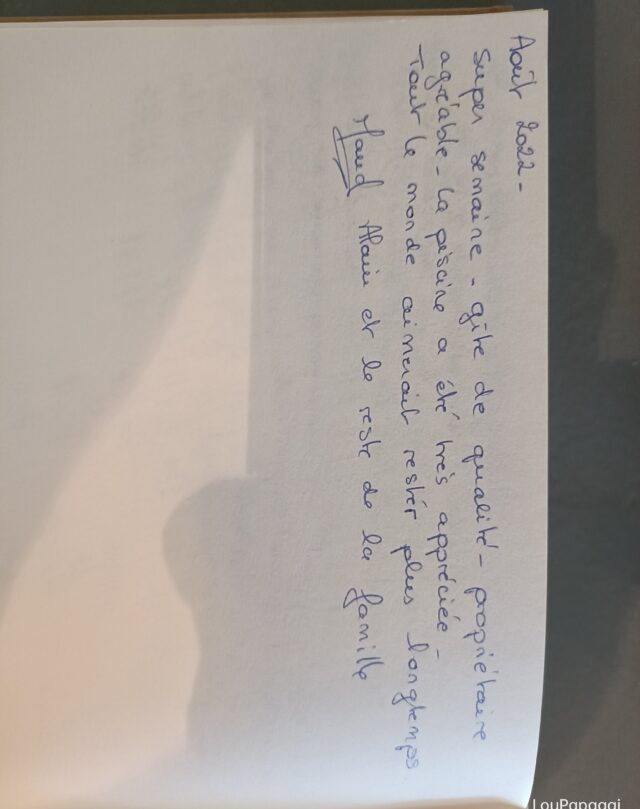 Août 2022-
Super semaine - gîte de qualité - propriétaire
agréable - la piscine a été très appréciée -
Tout le monde aimerait rester plus longtemps.
Maud Alain et le reste de la famille
LouPapagai